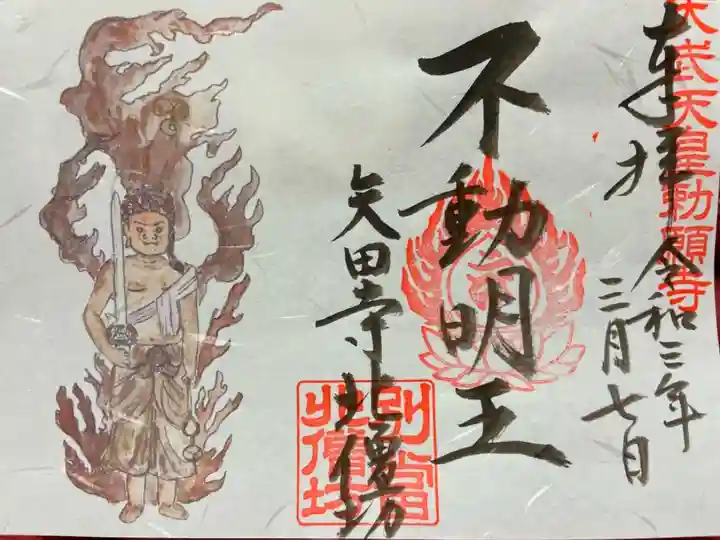 天武天皇勅願寺
奉拝
令和三年
三月七日
不動明王
矢田寺北僧坊
別当
北僧坊